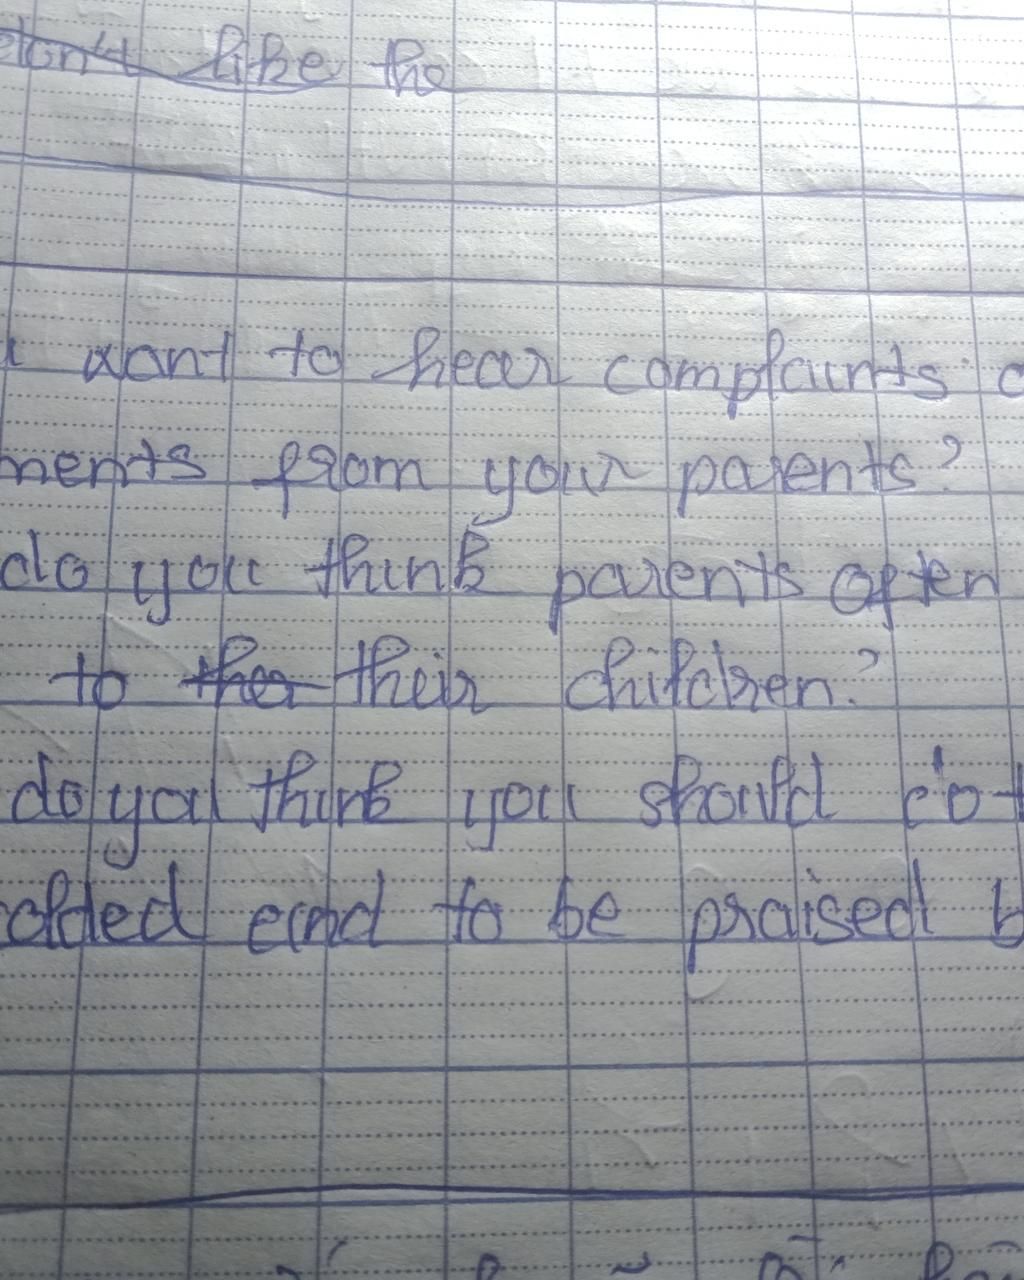 don't like the
want to hear complaints
ments from your parents?
do you think parents often
to their children?
do you think you should
olded and to be praised